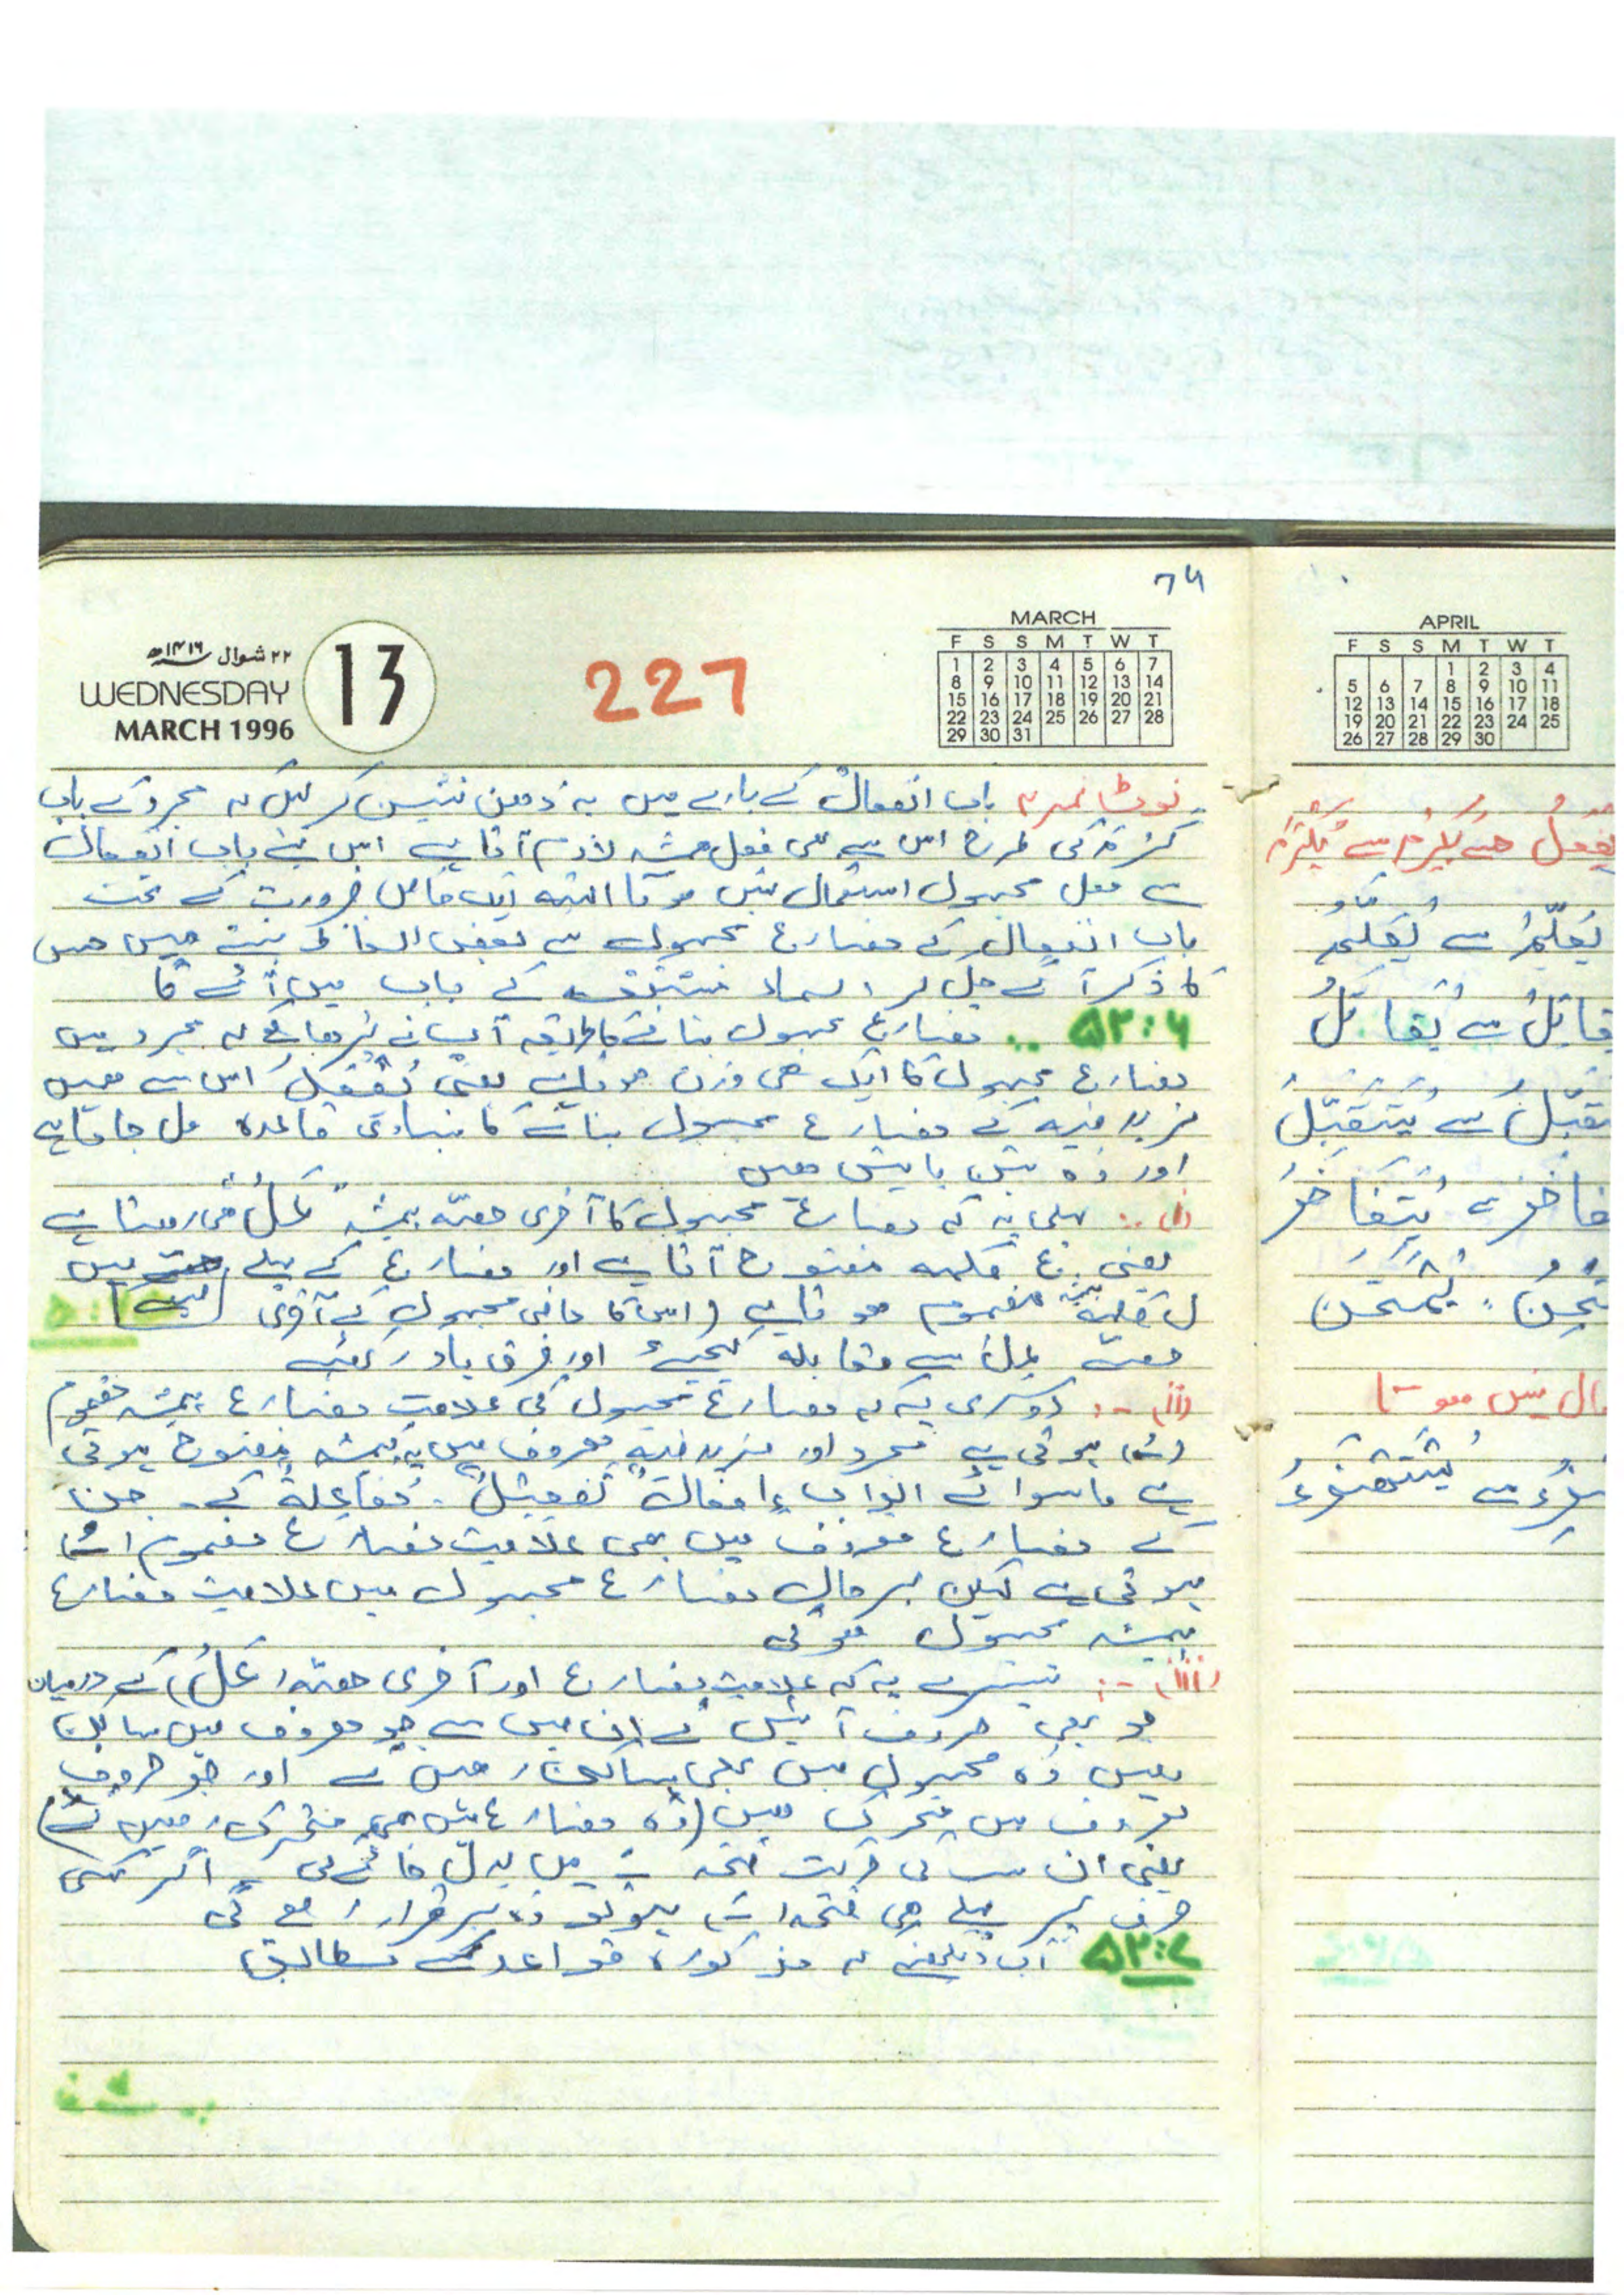 ۷۴
۲۲ شوال ۱۴۱۶ھ
WEDNESDAY
MARCH 1996
13
227
MARCH
F S S M T W T
1 2 3 4 5 6 7
8 9 10 11 12 13 14
15 16 17 18 19 20 21
22 23 24 25 26 27 28
29 30 31
نوٹ نمبر ۲ باب انفعال کے بارے میں یہ ذھن نشین کر لیں کہ مجرد کے باب
کَرُمَ کی طرح اس سے بھی فعل ھمیشہ لازم آتا ہے اس لئے باب انفعال
سے فعل مجہول استعمال نہیں ھوتا البتہ ایک خاص ضرورت کے تحت
باب انفعال کے مضارع مجہول سے بعض الفاظ بنتے ہیں جن
کا ذکر آگے چل کر اسماء مشتقہ کے باب میں آئے گا
۵۲:۶ مضارع مجہول بنانے کا طریقہ آپ نے پڑھا ہے کہ مجرد میں
مضارع مجہول کا ایک ھی وزن ھوتا ہے یعنی یُفْعَلُ اس سے ھمیں
مزید فیہ کے مضارع مجہول بنانے کا بنیادی قاعدہ مل جاتا ہے
اور وہ تین باتیں ھیں
(i) :. پہلی یہ کہ مضارع مجہول کا آخری حصّہ ہمیشہ "عَلُ" ھی رھتا ہے
یعنی ع کلمہ مفتوح آتا ہے اور مضارع کے پہلے میں
ل کلمہ مضموم ھوتا ہے (اس کا ماضی مجہول کے آخری
حصے عِلَ سے مقابلہ کیجیئے اور فرق یاد رکھیے
(ii) :- دوسری یہ کہ مضارع مجہول کی علامتِ مضارع ہمیشہ مضموم
(ـُـ) ہوتی ہے مجرد اور مزید فیہ معروف میں یہ ہمیشہ مفتوح ہوتی
ہے ماسوائے ابواب اِفعال، تَفعِیل، مُفاعَلة کے۔ جن
کے مضارع معروف میں بھی علامتِ مضارع مضموم (ـُـ)
ہوتی ہے لیکن بہر حال مضارع مجہول میں علامتِ مضارع
ہمیشہ مجہول ھوگی
(iii) :- تیسرے یہ کہ علامتِ مضارع اور آخری حصّہ (عَلُ) کے درمیان
جو بھی حروف آئیں گے ان میں سے جو معروف میں ساکن
ھیں وہ مجہول میں بھی ساکن رھیں گے اور جو حروف
معروف میں متحرک ھیں (وہ مضارع میں بھی متحرک رھیں گے)
یعنی ان سب کی حرکت فتحہ ـَـ میں بدل جائے گی اگر کسی
حرف پر پہلے ھی فتحہ (ـَـ) ہو تو وہ برقرار رھے گی
۵۲:۷ اب دیکھئے کہ مذکورہ قواعد کے مطابق
APRIL
F S S M T W T
1 2 3 4
5 6 7 8 9 10 11
12 13 14 15 16 17 18
19 20 21 22 23 24 25
26 27 28 29 30
یُفْعَلُ جیسے یُکْرِمُ سے یُکْرَمُ
یُعَلِّمُ سے یُعَلَّمُ
یُقَاتِلُ سے یُقَاتَلُ
یَتَقَبَّلُ سے یُتَقَبَّلُ
یَتَفَاخَرُ سے یُتَفَاخَرُ
یَمْتَحِنُ یُمْتَحَنُ
مال نہیں ھوتا
سے یُسْتَھْزَءُ